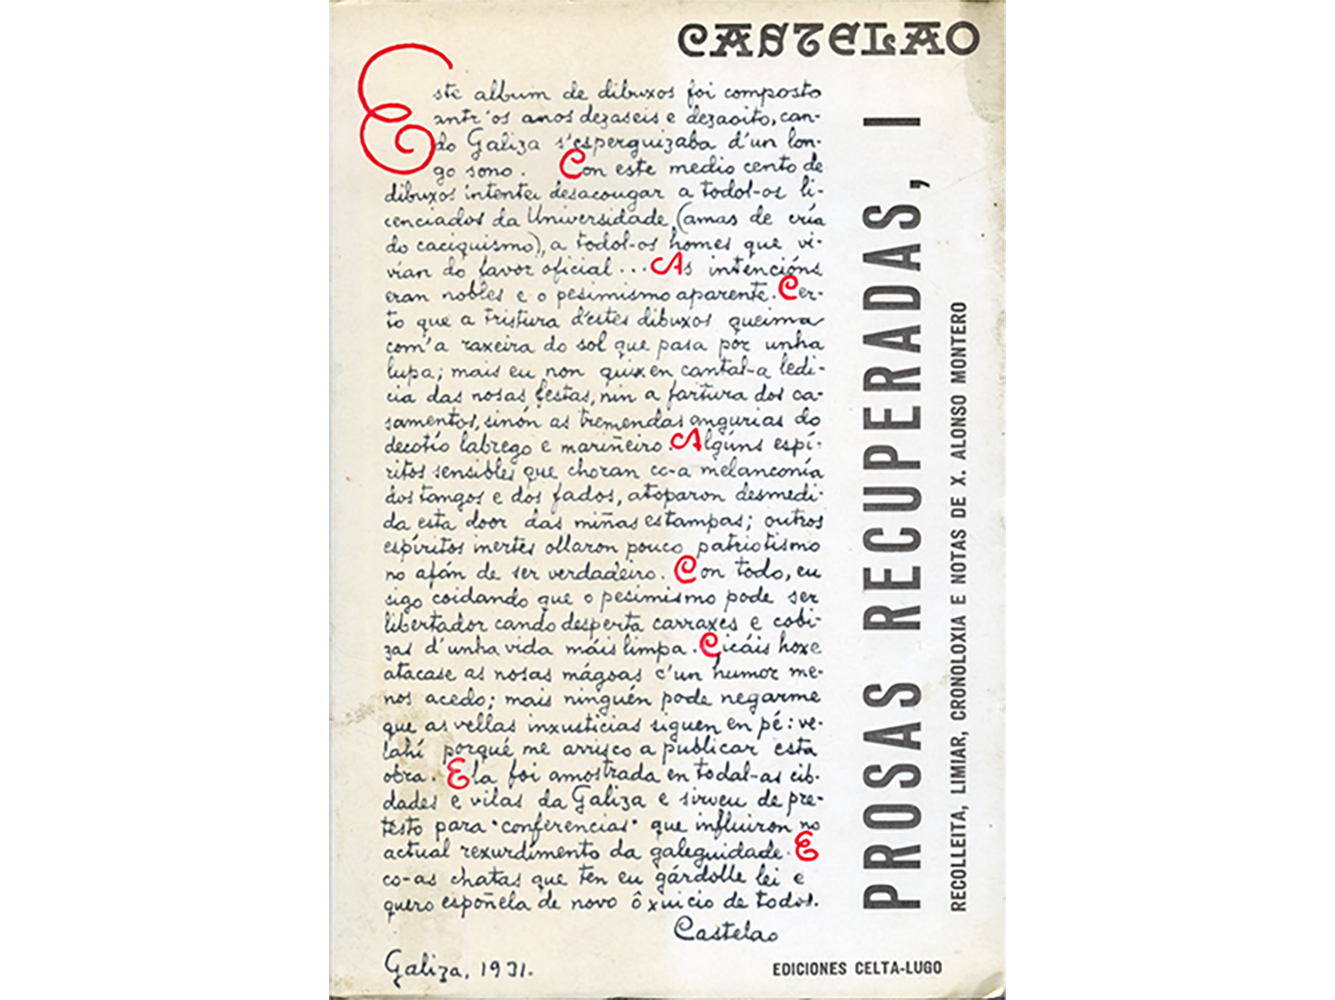 CASTELAO
Este album de dibuxos foi composto
antr'os anos dezaseis e dezaoito, can-
do Galiza s'esperguizaba d'un lon-
go sono. Con este medio cento de
dibuxos intentei desacougar a todol-os li-
cenciados da Universidade (amas de cría
do caciquismo), a todol-os homes que vi-
vían do favor oficial... As intencións
eran nobles e o pesimismo aparente. Cer-
to que a tristura d'estes dibuxos queima
com'a raxeira do sol que pasa por unha
lupa; mais eu non quixen cantal-a ledi-
cia das nosas festas, nin a fartura dos ca-
samentos, sinón as tremendas angurias do
decotío labrego e mariñeiro. Algúns espí-
ritos sensibles que choran co-a melanconía
dos tangos e dos fados, atoparon desmedi-
da esta door das miñas estampas; outros
espíritos inertes ollaron pouco patriotismo
no afán de ser verdadeiro. Con todo, eu
sigo coidando que o pesimismo pode ser
libertador cando desperta carraxes e cobi-
zas d'unha vida máis limpa. Cicáis hoxe
atacase as nosas mágoas c'un humor me-
nos acedo; mais ninguén pode negarme
que as vellas inxusticias siguen en pé: ve-
lahí porqué me arrisco a publicar esta
obra. Ela foi amostrada en todal-as cib-
dades e vilas da Galiza e sirveu de pre-
testo para "conferencias" que influiron no
actual rexurdimento da galeguidade. E
co-as chatas que ten eu gárdolle lei e
quero espoñela de novo ô xuicio de todos.
Castelao
Galiza, 1931.
PROSAS RECUPERADAS, I
RECOLLEITA, LIMIAR, CRONOLOXIA E NOTAS DE X. ALONSO MONTERO
EDICIONES CELTA-LUGO